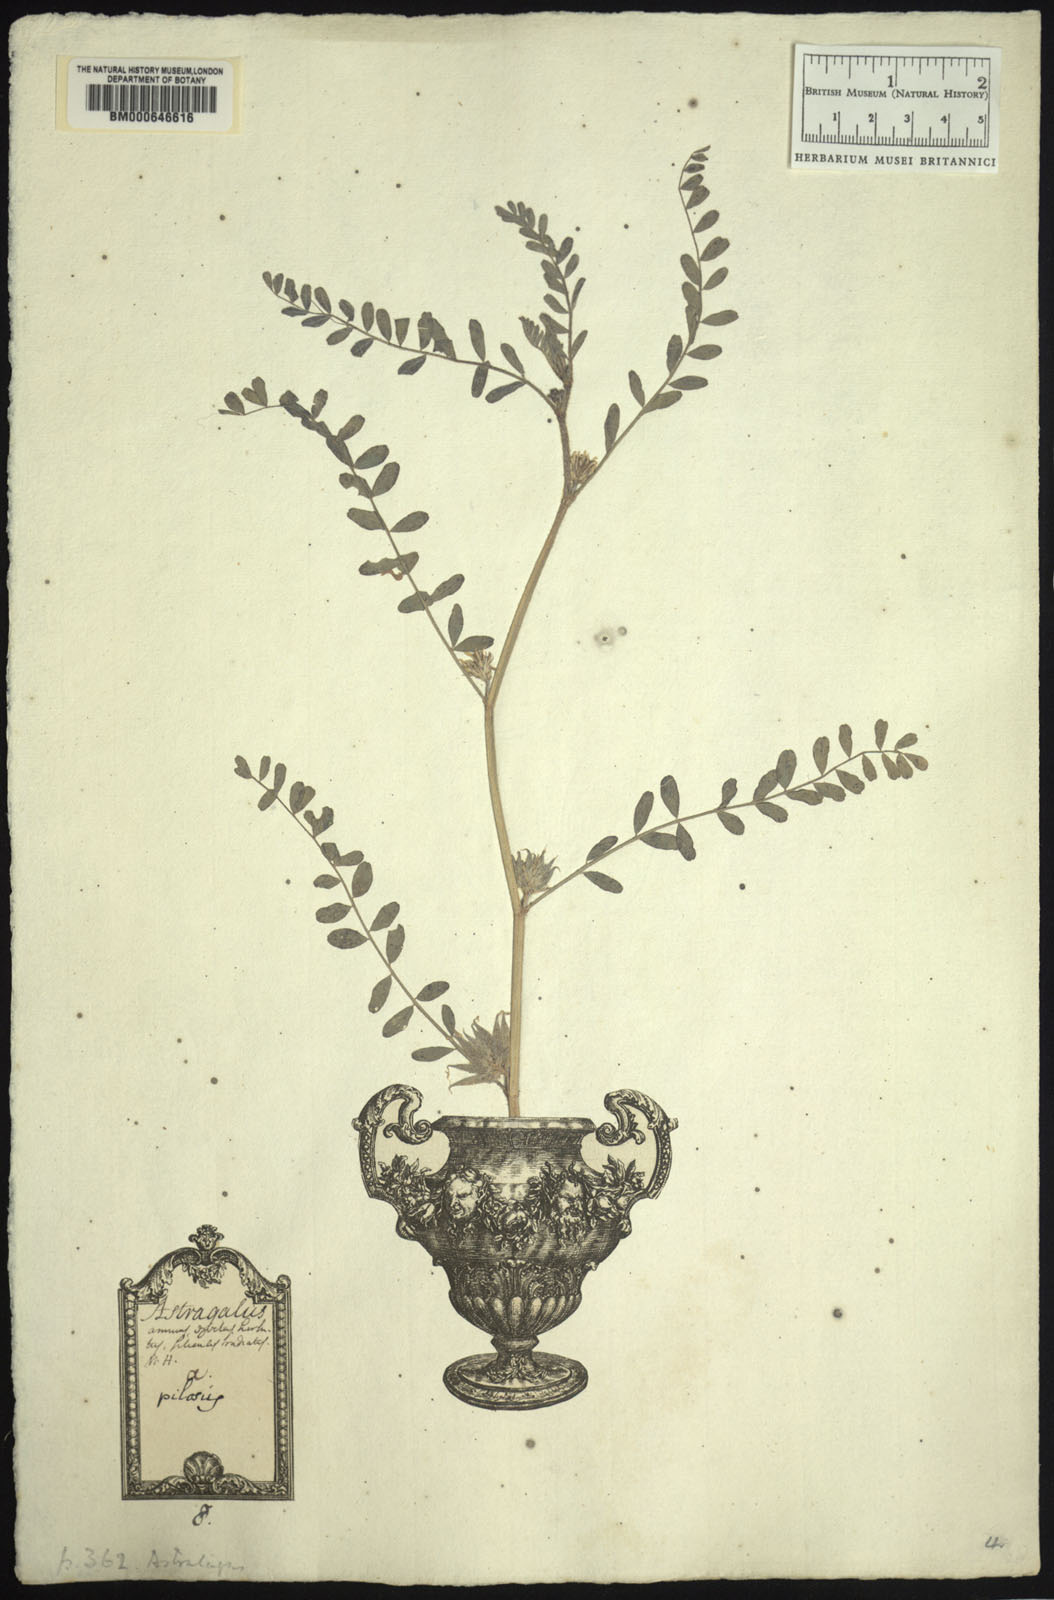 THE NATURAL HISTORY MUSEUM, LONDON
DEPARTMENT OF BOTANY
BM000646616
1 2
BRITISH MUSEUM (NATURAL HISTORY)
1 2 3 4 5
HERBARIUM MUSEI BRITANNICI
Astragalus
annuus
N. H.
α.
pilosus
8.
p. 362.
4